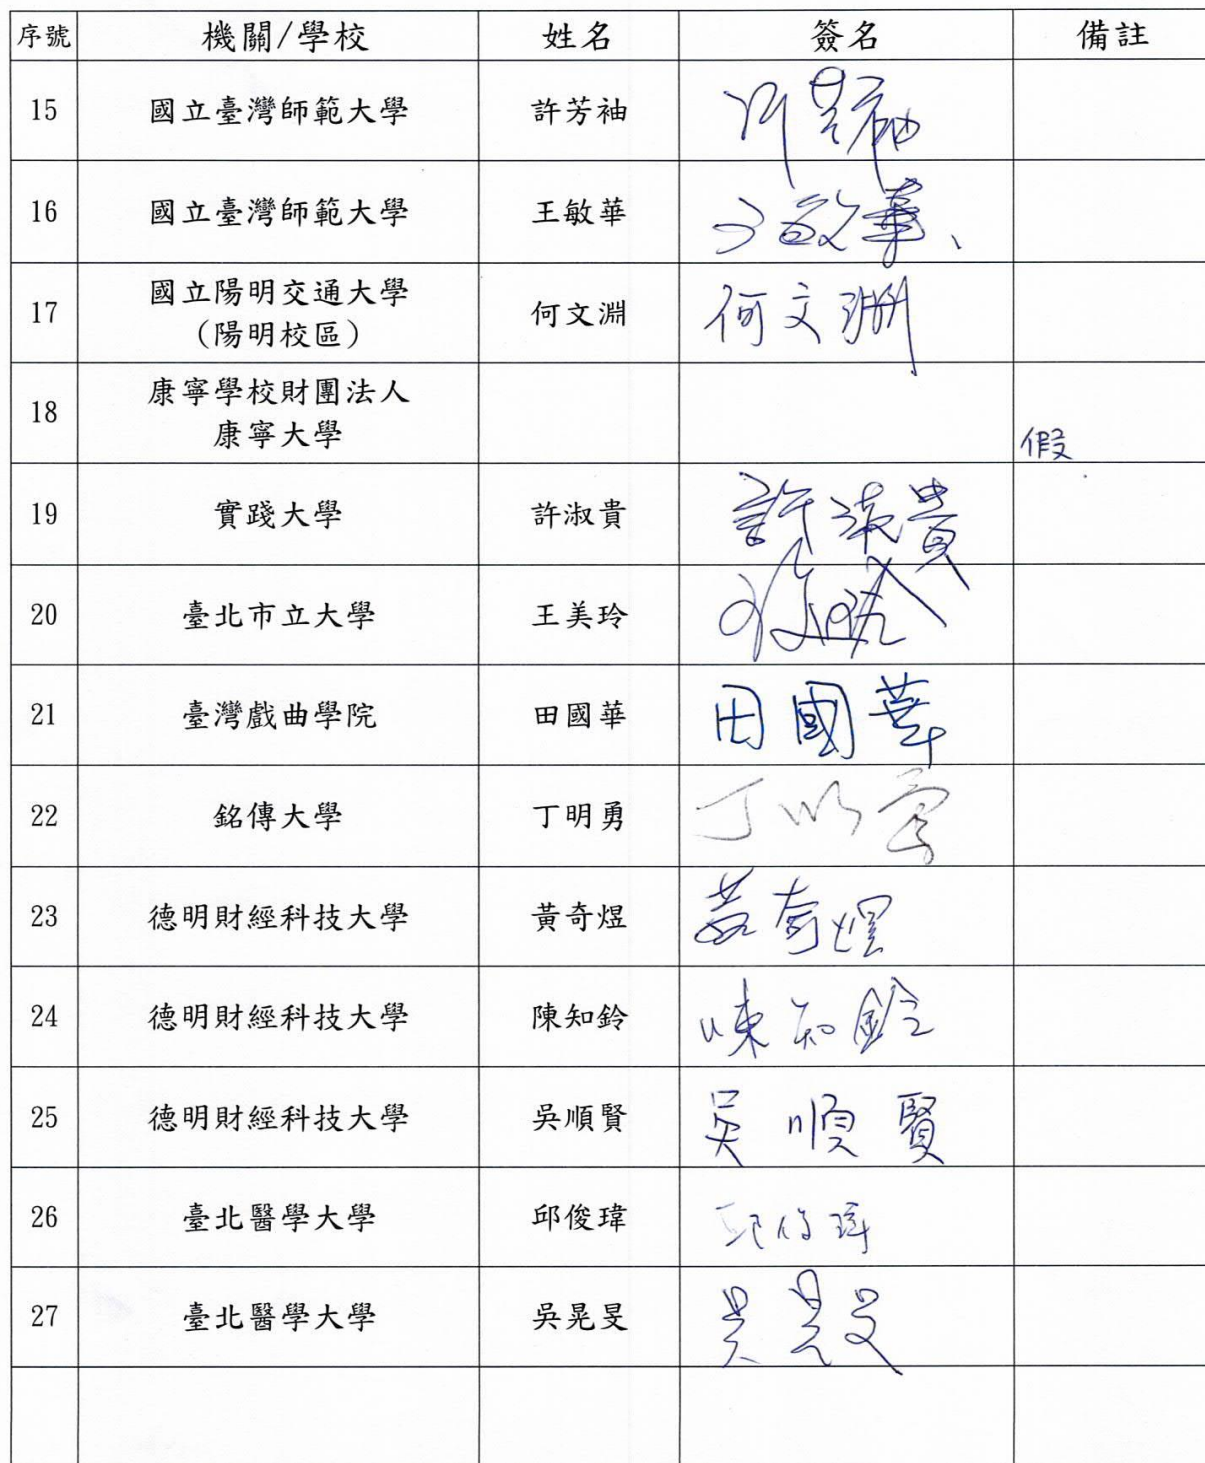 序號 機關/學校 姓名 簽名 備註
15 國立臺灣師範大學 許芳袖
16 國立臺灣師範大學 王敏華 王敏華
17 國立陽明交通大學 何文淵 何文淵
(陽明校區)
18 康寧學校財團法人
康寧大學 假
19 實踐大學 許淑貴 許淑貴
20 臺北市立大學 王美玲
21 臺灣戲曲學院 田國華 田國華
22 銘傳大學 丁明勇 丁明勇
23 德明財經科技大學 黃奇煜 黃奇煜
24 德明財經科技大學 陳知鈴 陳知鈴
25 德明財經科技大學 吳順賢 吳順賢
26 臺北醫學大學 邱俊瑋 邱俊瑋
27 臺北醫學大學 吳晃旻 吳晃旻